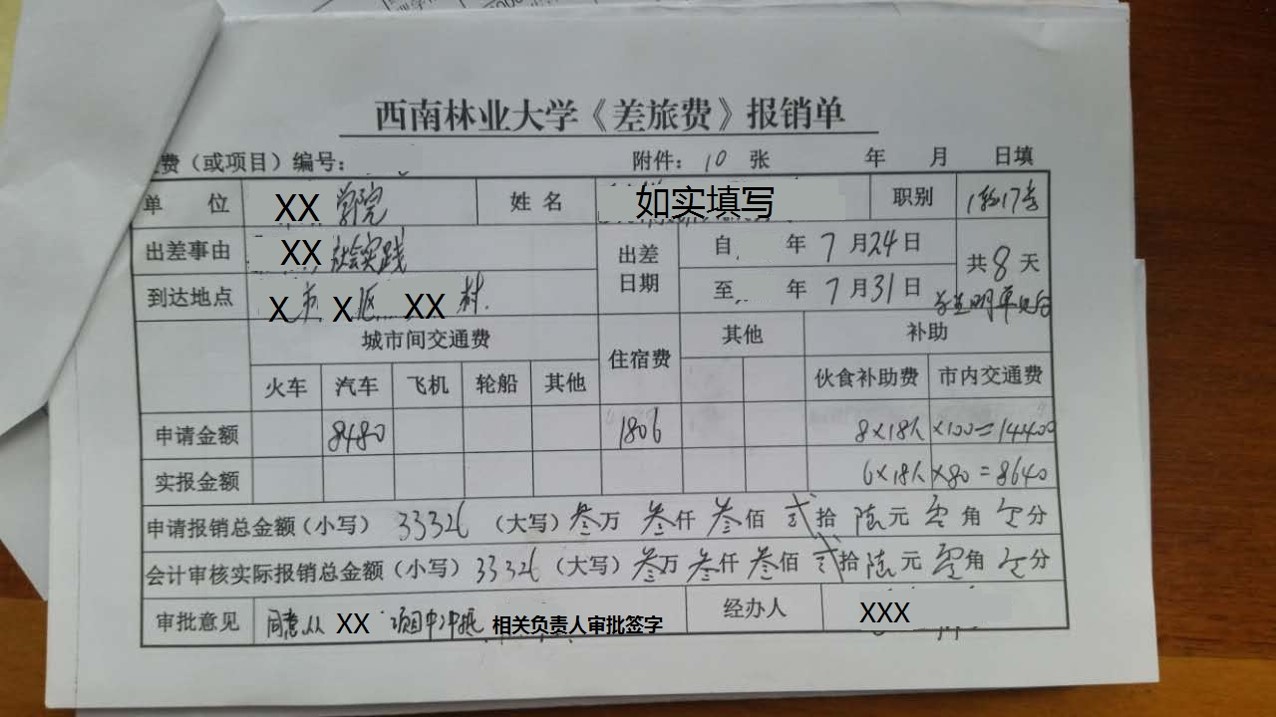 西南林业大学《差旅费》报销单
费（或项目）编号： 附件：10 张 年 月 日填
单 位 XX 学院 姓 名 如实填写 职别
出差事由 XX 社会实践 出差日期 自 年 7 月 24 日 共 8 天
到达地点 X 市 X 区 XX 村 至 年 7 月 31 日
城市间交通费 住宿费 其他 补助
火车 汽车 飞机 轮船 其他 伙食补助费 市内交通费
申请金额 8480 1806 8×18人 ×100=14400
实报金额 6×18人 ×80=8640
申请报销总金额（小写） 33326 （大写）叁万 叁仟 叁佰 贰拾 陆元 零角 零分
会计审核实际报销总金额（小写）33326 （大写）叁万 叁仟 叁佰 贰拾 陆元 零角 零分
审批意见 同意从 XX 项目中冲抵 相关负责人审批签字 经办人 XXX